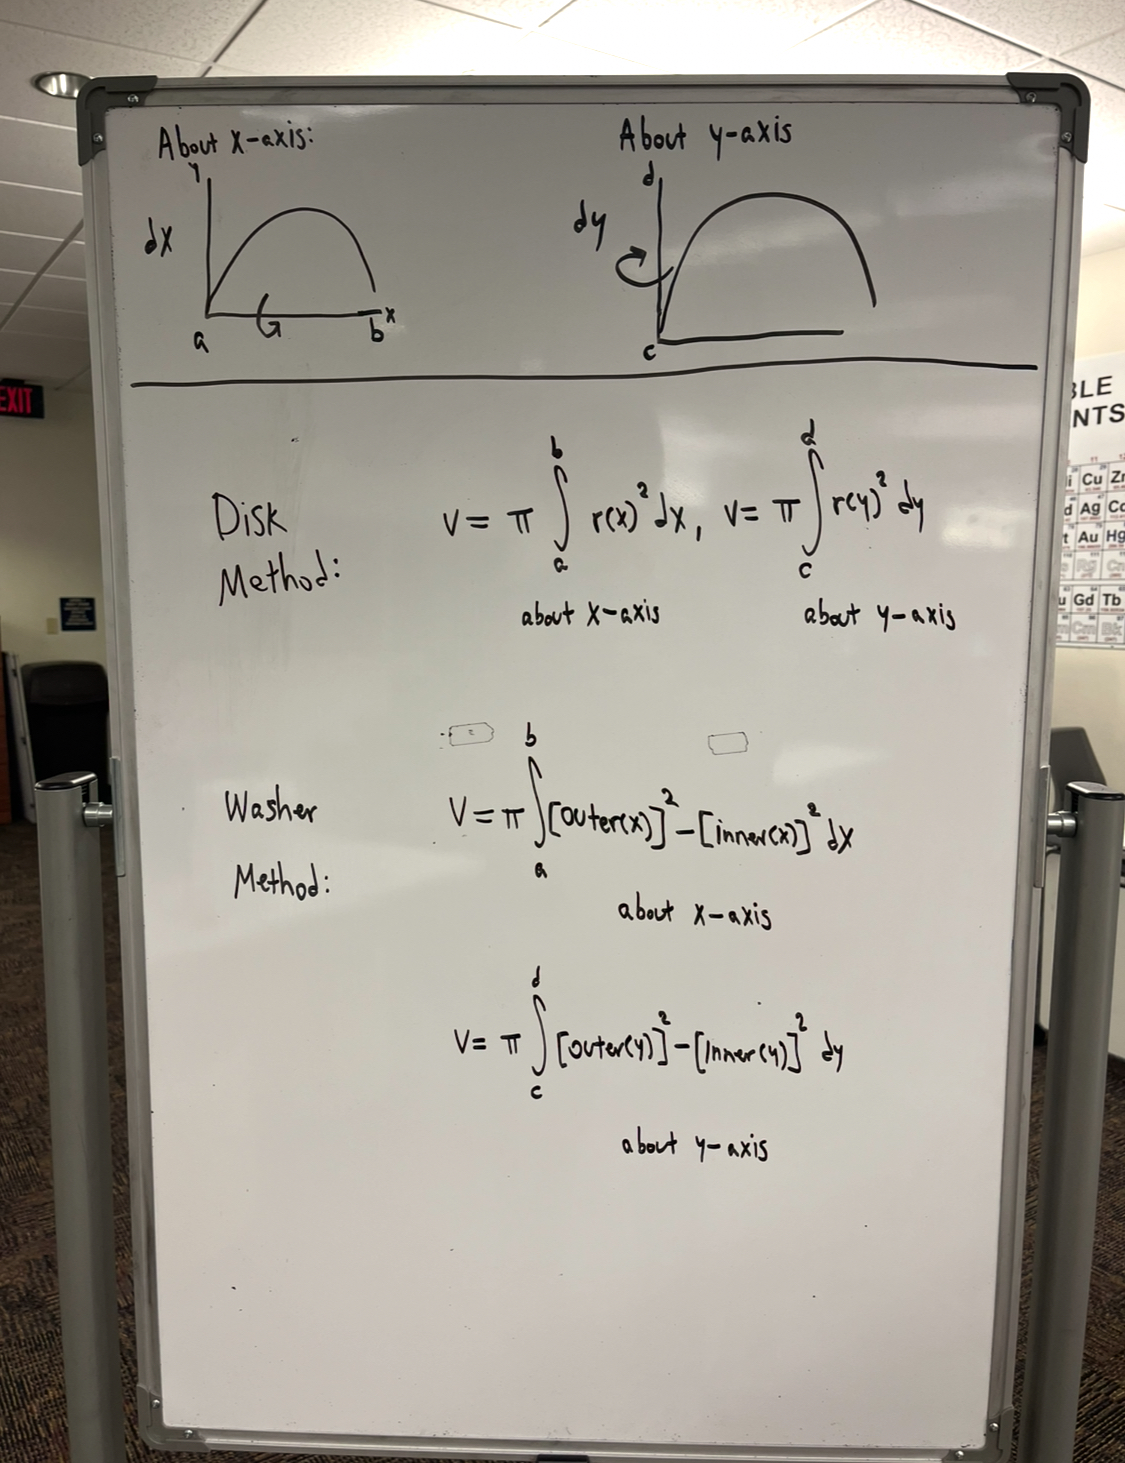 About x-axis:
About y-axis
y
d
dx
dy
x
a
b
c
EXIT
BLE
NTS
Cu Zn
Ag
Au Hg
Gd Tb
Cm Bk
Disk
Method:
V = π ∫ₐᵇ r(x)² dx, V = π ∫ r(y)² dy
d
c
about x-axis
about y-axis
Washer
Method:
V = π ∫ₐᵇ [outer(x)]² - [inner(x)]² dx
about x-axis
d
V = π ∫ [outer(y)]² - [inner(y)]² dy
c
about y-axis